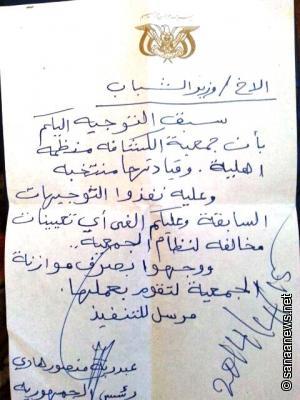 الاخ / وزير الشباب
سبق التوجيه اليكم
بأن جمعية الكشافه منظمه
اهلية . وقيادتها منتخبه
وعليه نفذوا التوجيهات
السابقة وعليكم الغى أي تعيينات
مخالفه لنظام الجمعية ..
ووجهوا بصرف موازنة
الجمعية لتقوم بعملها
مرسل للتنفيذ
عبدربه منصور هادي
رئيس الجمهوريه
2014/4/15
© sanaanews.net